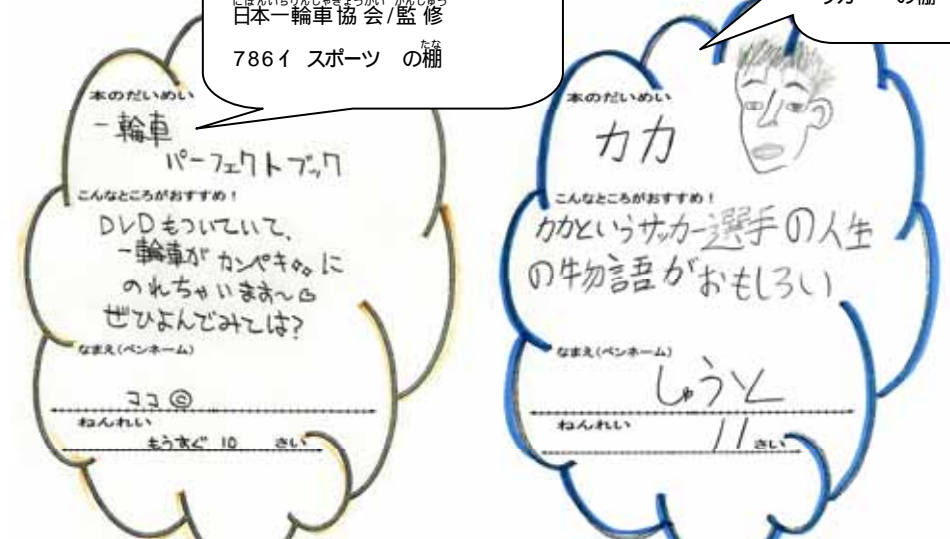 日本一輪車協会/監修
786イ スポーツ の棚
本のだいめい
一輪車
パーフェクトブック
こんなところがおすすめ!
DVDもついていて、
一輪車がカンペキに
のれちゃいます~
ぜひよんでみては?
なまえ(ペンネーム)
ココ©
ねんれい
もうすぐ 10 さい
の棚
本のだいめい
カカ
こんなところがおすすめ!
カカというサッカー選手の人生
の物語がおもしろい
なまえ(ペンネーム)
しゅうと
ねんれい
11 さい